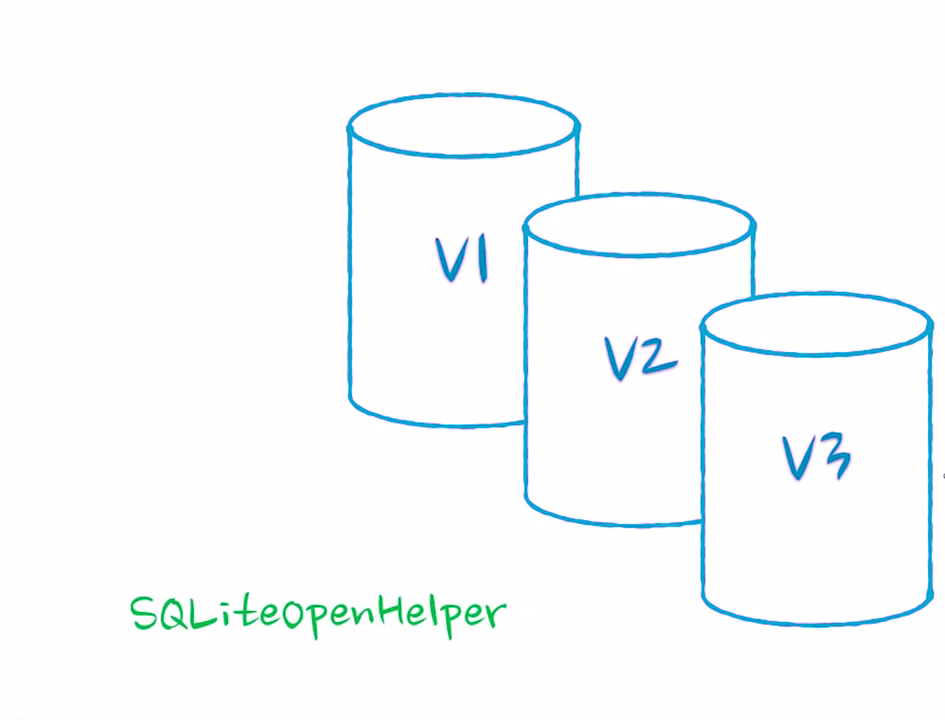 V1
V2
V3
SQLiteOpenHelper